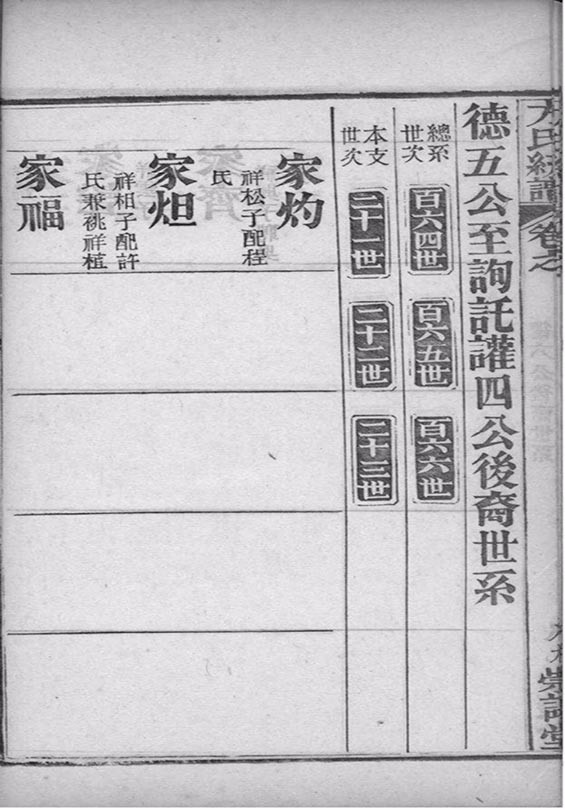 德五公至詢託讙四公後裔世系
總系世次
百六四世
百六五世
百六六世
本支世次
二十一世
二十二世
二十三世
家灼
祥松子配程
氏
家炟
祥相子配許
氏兼祧祥植
家福
氏總譜
卷之
崇誥堂